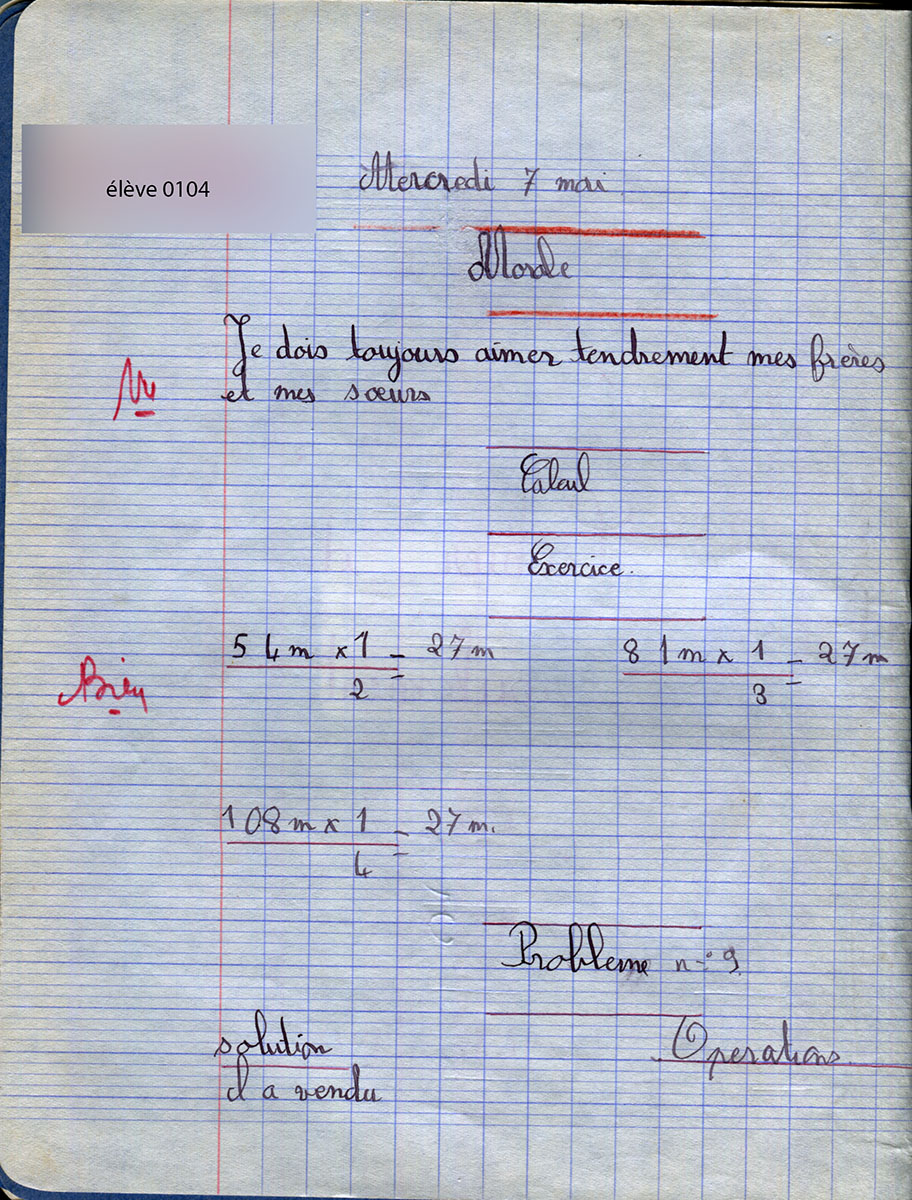 élève 0104
Mercredi 7 mai
Morale
Je dois toujours aimer tendrement mes frères
Vu
et mes sœurs
Calcul
Exercice.
54m x 1 = 27m 81m x 1 = 27m
2 3
Bien
108m x 1 = 27m.
4
Probleme n° 9
solution Operations
il a vendu